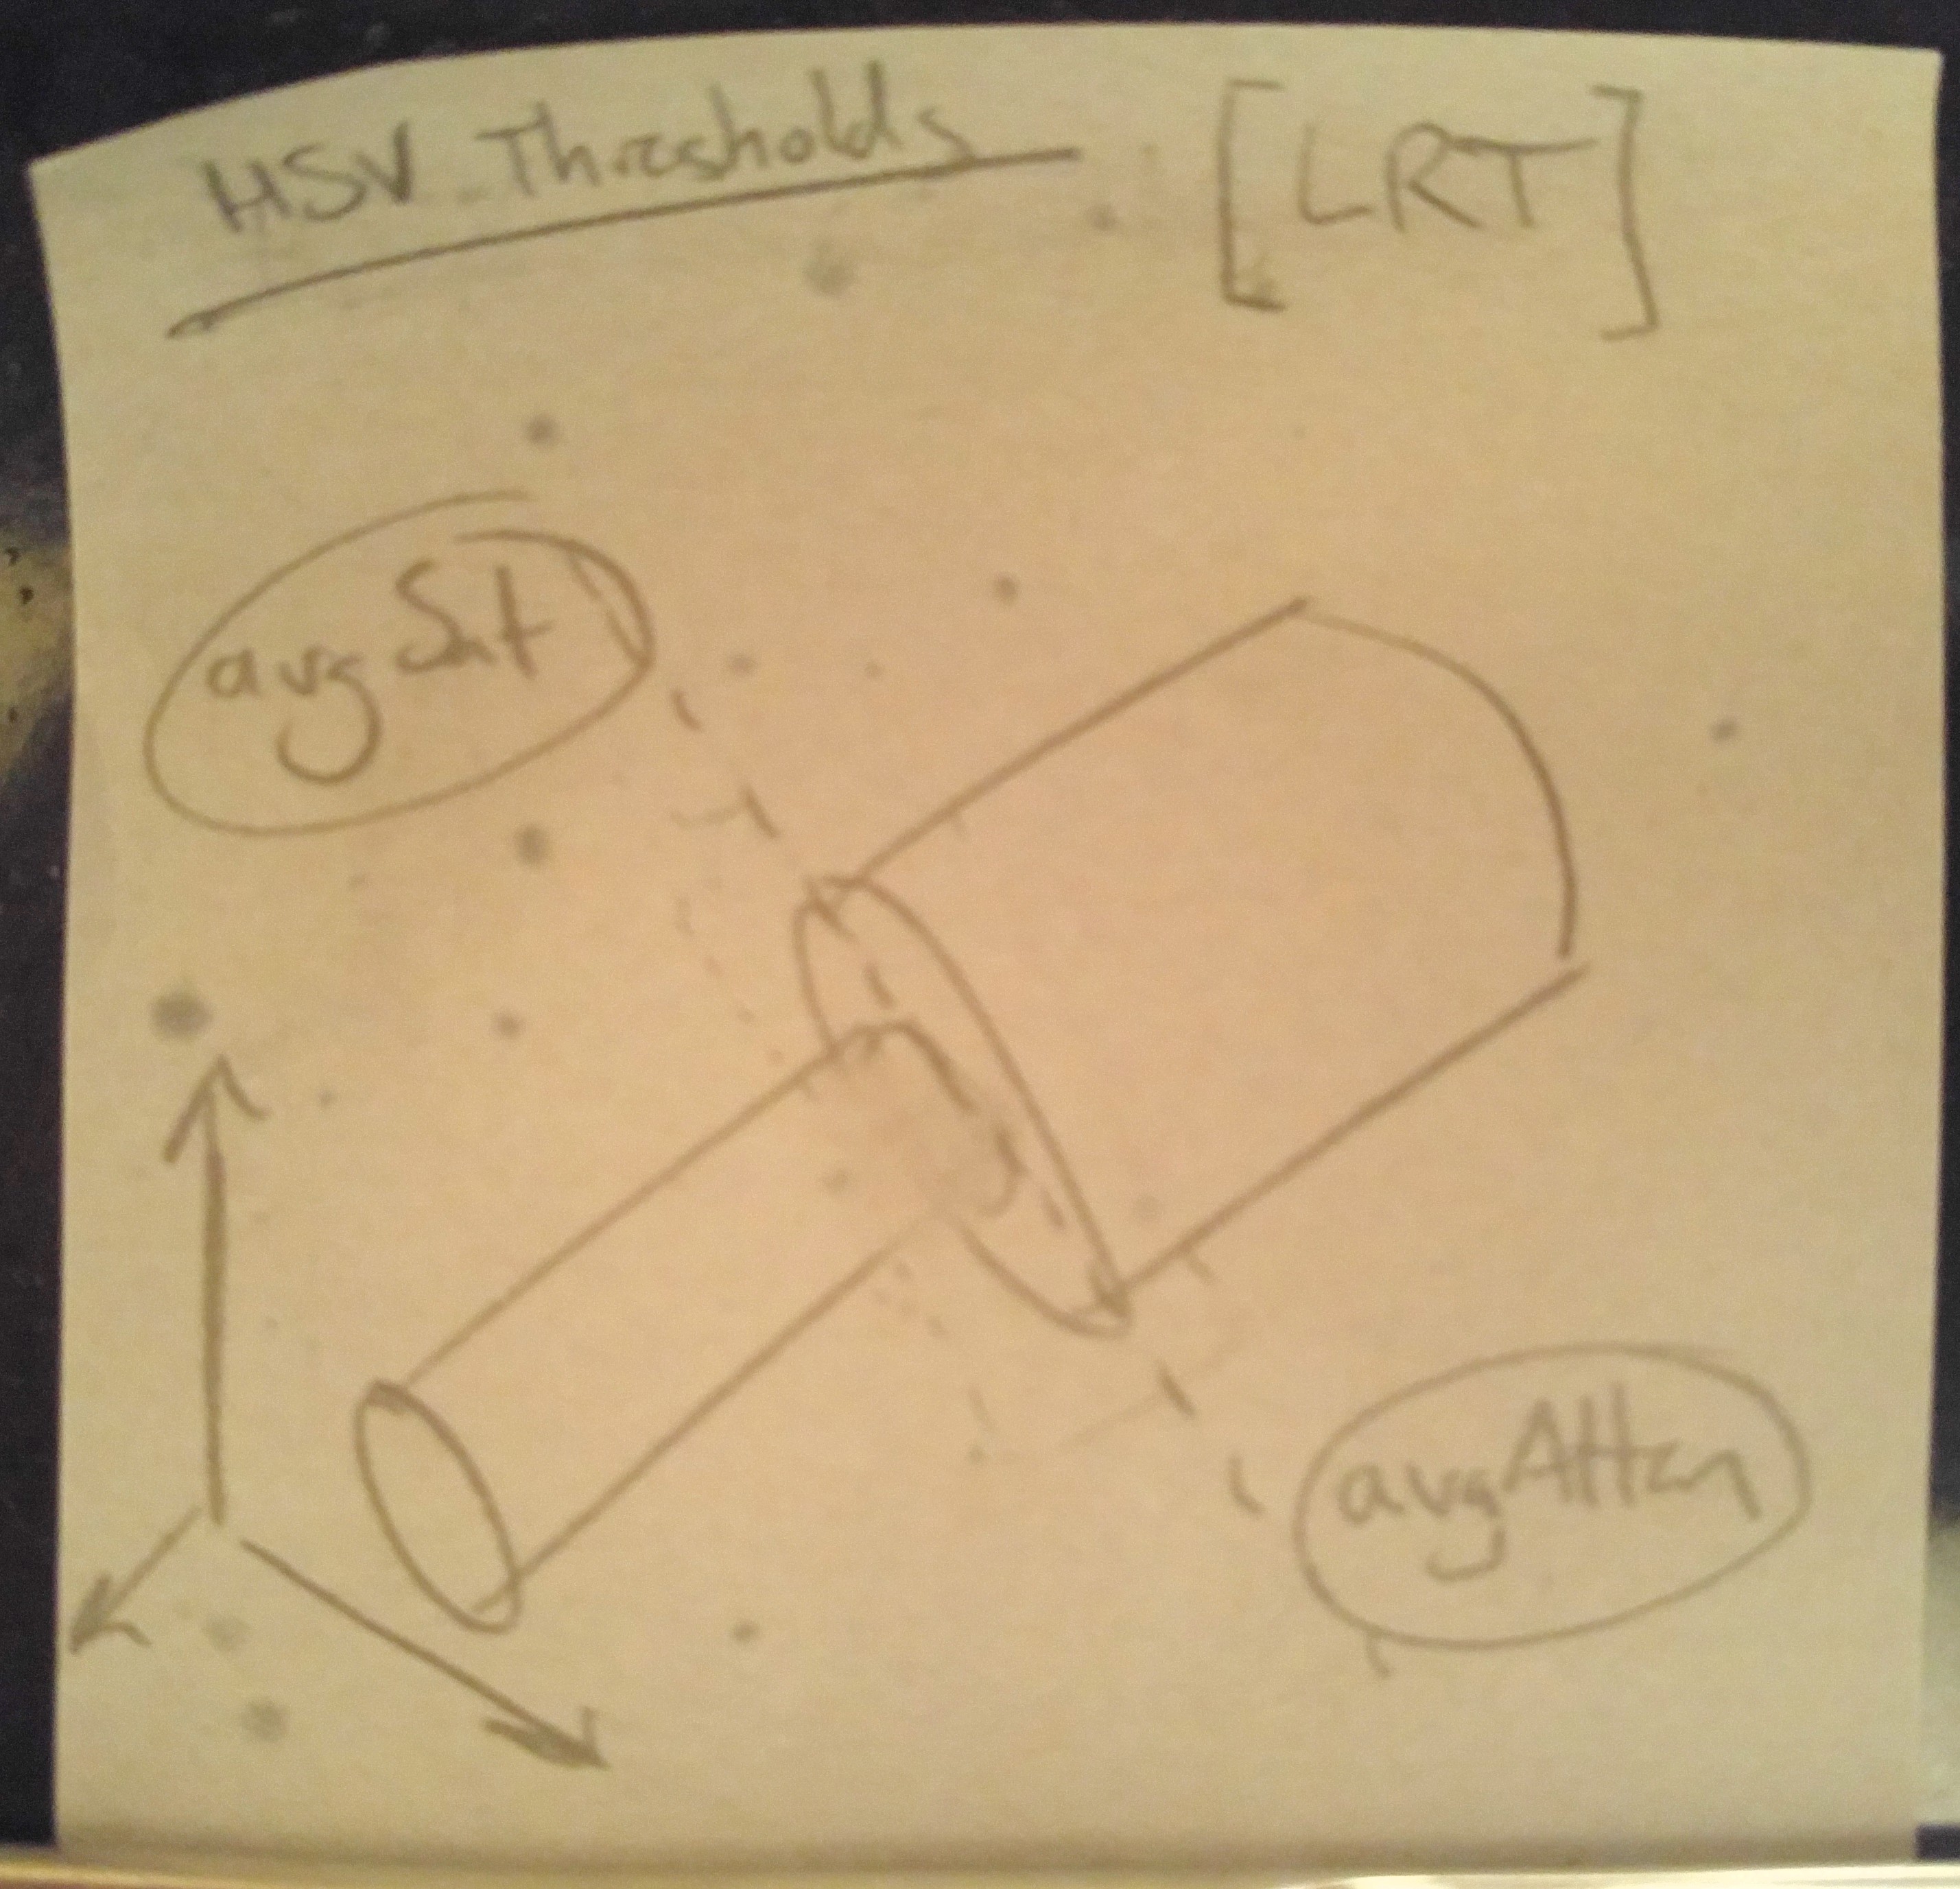 HSV Thresholds [LRT]
avgSat
avgAtten